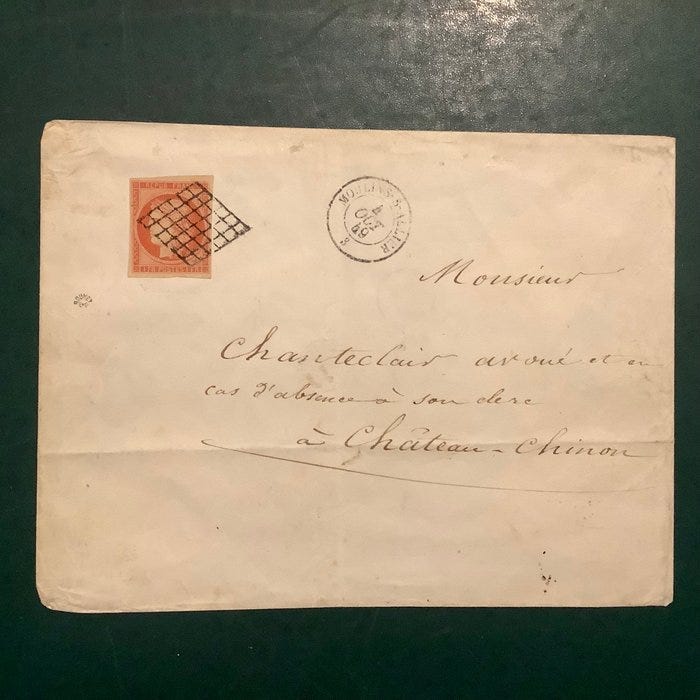 REPUB. FRANC
1 FR POSTES 1 FR
MOULINS-S-ALLIER
4
OCT
49
3
Monsieur
Chanteclair avoué et en
cas d'absence à son clerc
à Château-Chinon